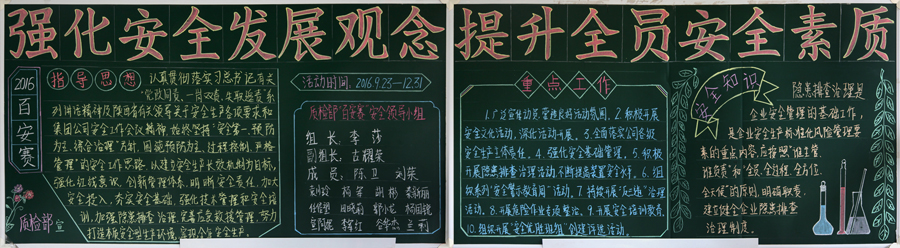 强化安全发展观念
提升全员安全素质
2016百安赛
指导思想
认真贯彻落实习总书记有关
"党政同责、一岗双责、失职追责"系
列讲话精神及陕西省有关领导关于安全生产各项要求和
集团公司安全工作会议精神,始终坚持"安全第一、预防
为主、综合治理"方针,围绕预防为主、过程控制、严格
管理"的安全工作思路,以建立安全生产长效机制为目标,
强化红线意识,创新管理体系,明晰安全责任,加大
安全投入,夯实安全基础,强化技术管理和安全培
训,加强隐患排查治理,完善应急救援管理,努力
打造本质安全型生产环境,实现全年安全生产。
质检部宣
活动时间:2016.9.23—12.31
质检部"百安赛"安全领导小组
组长:李莎
副组长:古耀荣
成员:陈卫 刘荣
重点工作
1.广泛宣传动员,营造良好活动氛围。2.积极开展
安全文化活动,深化活动开展。3.全面落实公司各级
安全生产主体责任。4.强化安全基础管理。5.积极
开展隐患排查治理活动,不断提高装置安全水平。6.组
织系列"安全警示教育周"活动。7.持续开展"反三违"治理
活动。8.开展危险作业专项整治。9.开展安全培训教育。
10.组织开展"安全先进班组"创建评选活动。
安全知识
隐患排查治理是
企业安全管理的基础工作,
是企业安全生产标准化风险管理要
素的重点内容,应按照"谁主管、
谁负责"和"全员、全过程、全方位、
全天候"的原则,明确职责,
建立健全企业隐患排查
治理制度。